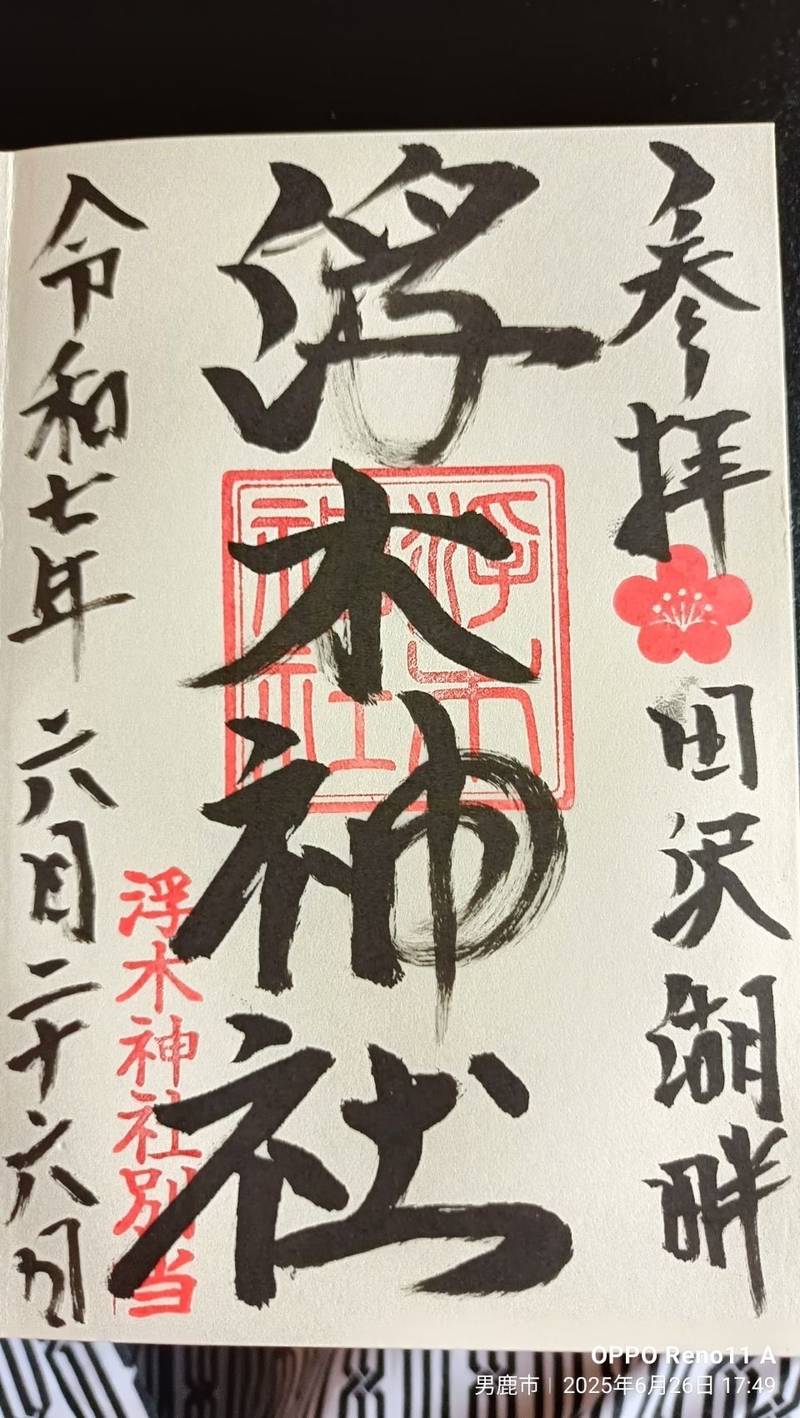 参拝
田沢湖畔
浮木神社
浮木神社
浮木神社別当
令和七年 六月二十六日
OPPO Reno11 A
男鹿市 | 2025年6月26日 17:49